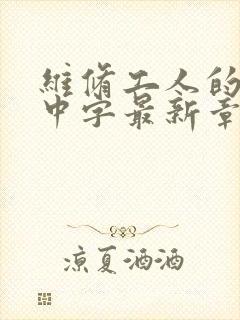 维修工人的
中字最新章
凉夏洒酒